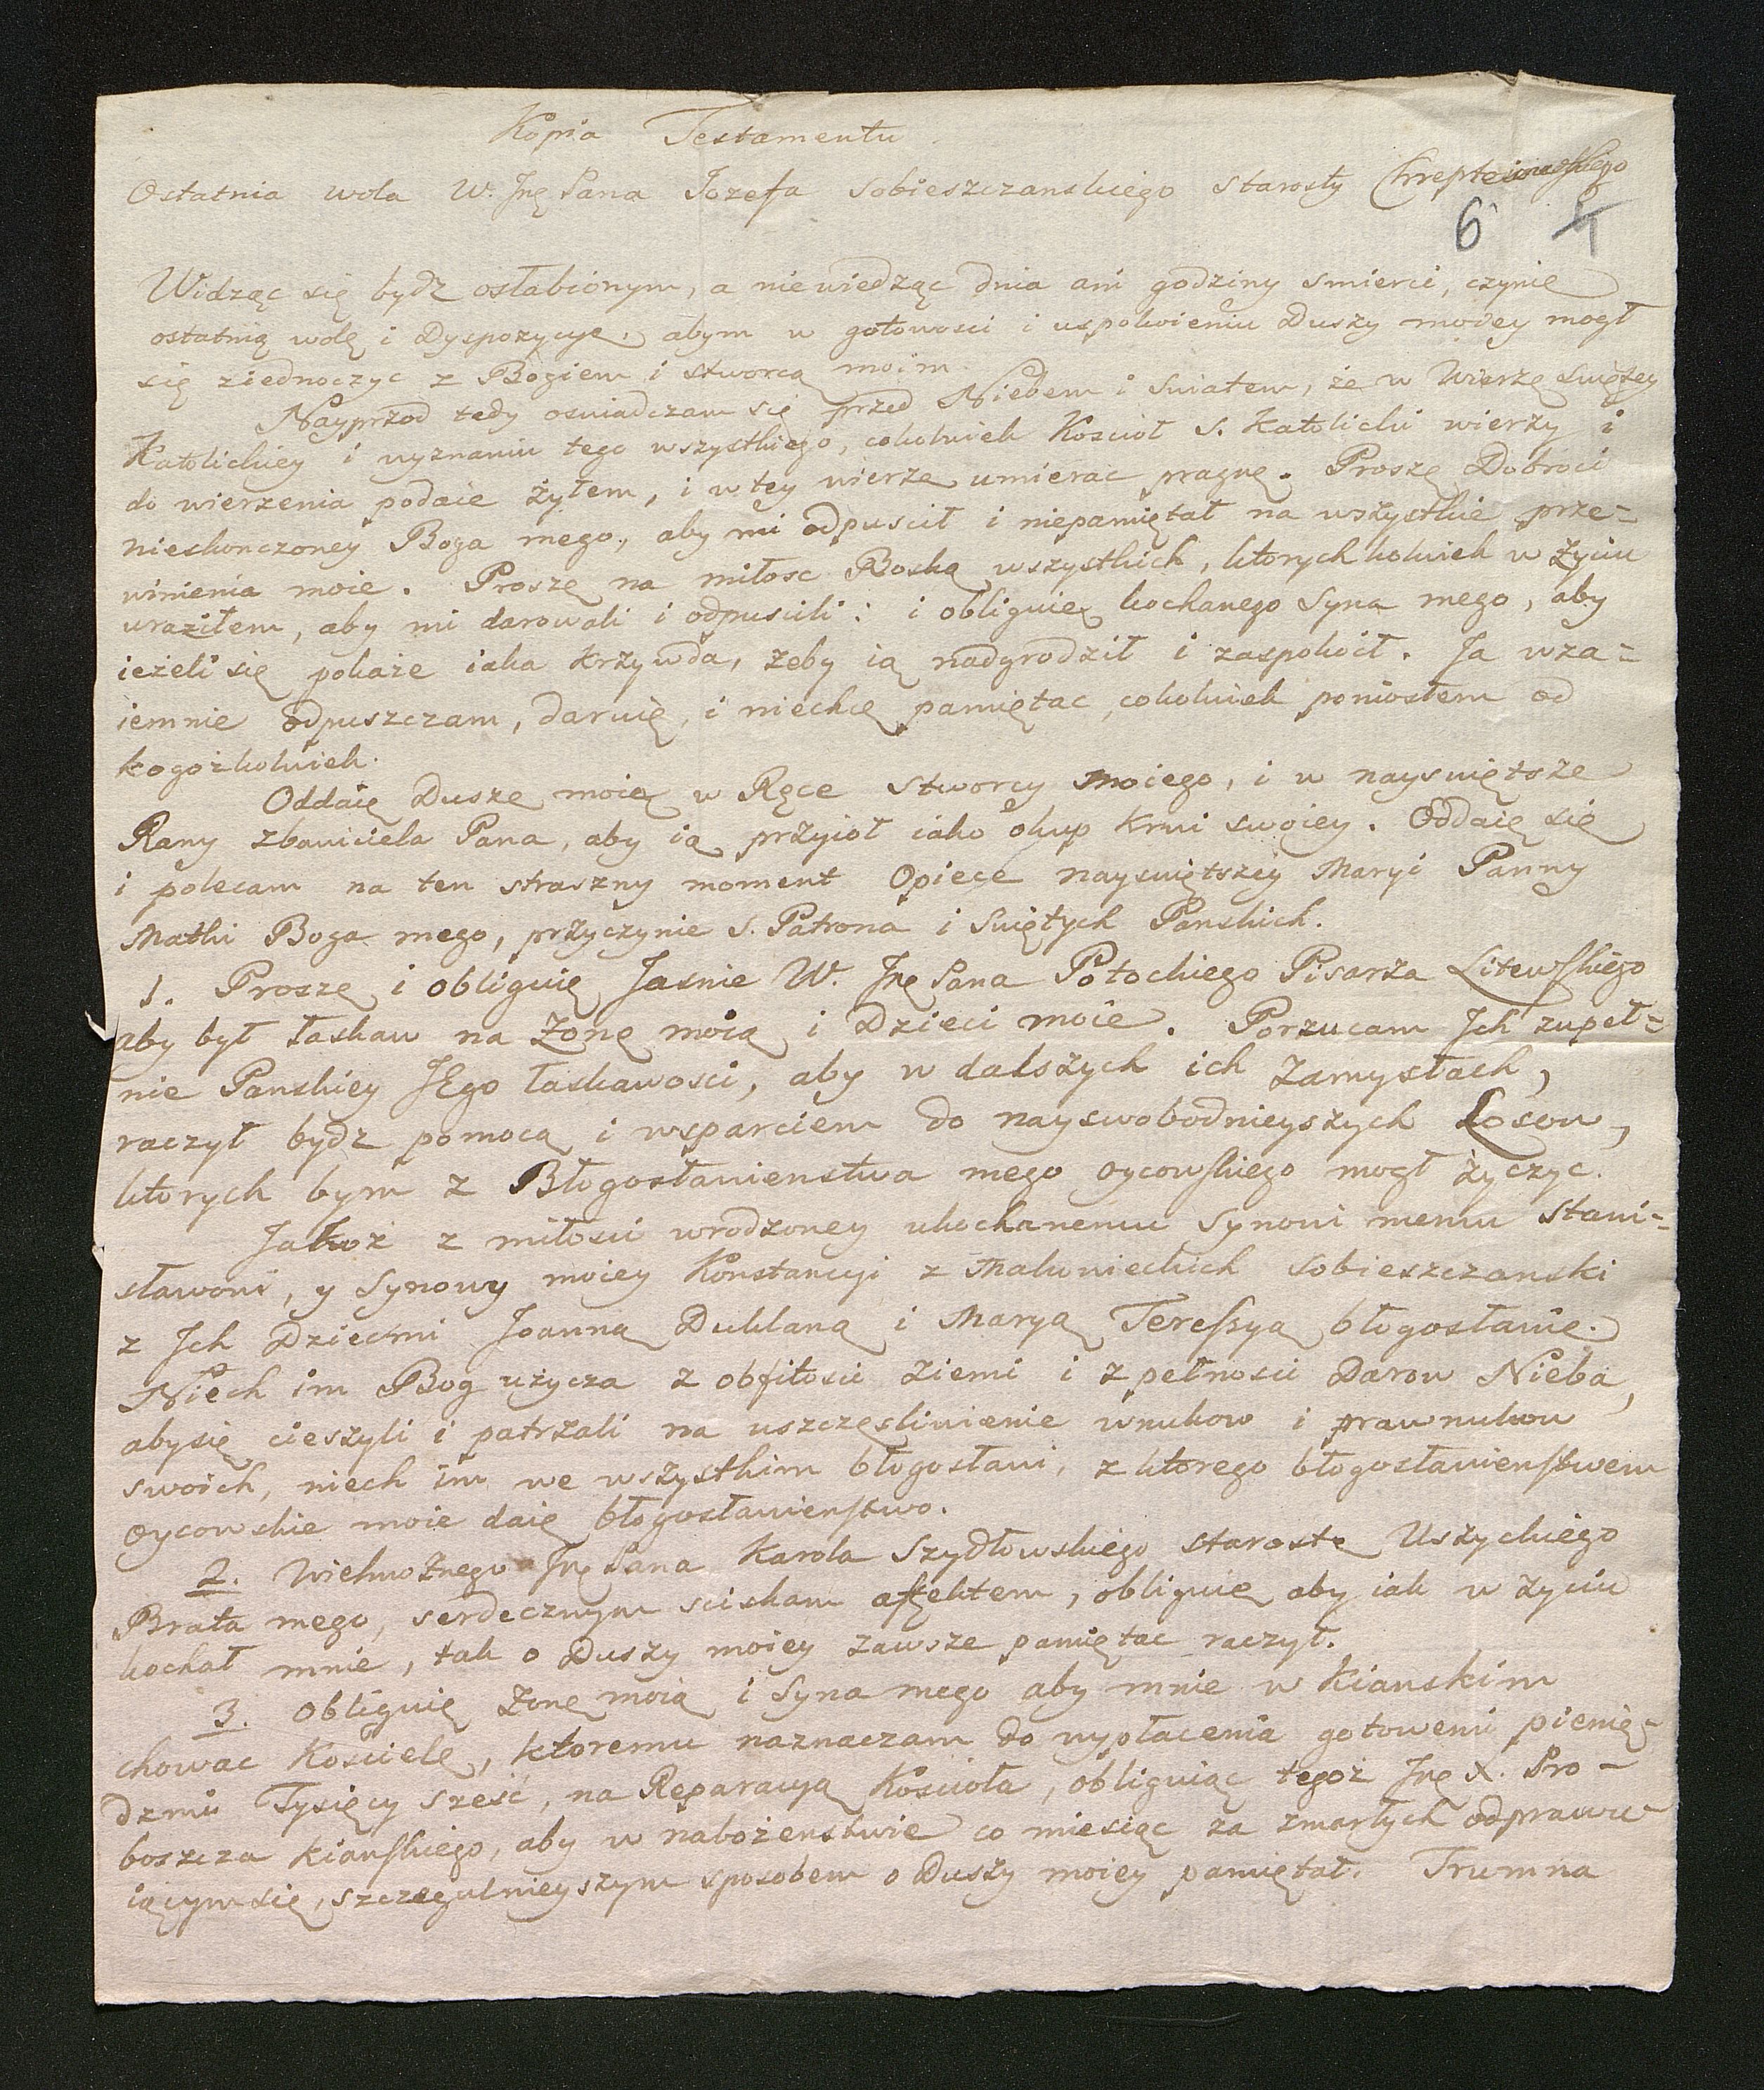 Kopia Testamentu
Ostatnia wola W. Jmę Pana Jozefa Sobieszczanskiego Starosty
6
Widząc się bydz osłabionym, a niewiedząc dnia ani godziny smierci, czynię
ostatnią wolę i Dyspozycyę, abym w gotowosci i uspokoieniu Duszy moiey mogł
się ziednoczyc z Bogiem i stworcą moim.
Nayprzod tedy oswiadczam się przed Niebem i swiatem, że w Wierze swiętey
Katolickiey i wyznaniu tego wszystkiego, cokolwiek Koscioł S. Katolicki wierzy i
do wierzenia podaie żyłem, i w tey wierze umierac pragnę. Proszę Dobroci
nieskonczoney Boga mego, aby mi odpuscił i niepamiętał na wszystkie prze=
winienia moie. Proszę na miłosc Boską wszystkich, ktorychkolwiek w życiu
uraziłem, aby mi darowali i odpuscili: i obliguię kochanego Syna mego, aby
ieżeli się pokaże iaka Krzywda, żeby ią nadgrodził i zaspokoił. Ja wza=
iemnie odpuszczam, daruię, i niechcę pamiętac, cokolwiek poniosłem od
kogożkolwiek.
Oddaię Duszę moię w Ręce Stworcy moiego, i w nayswiętsze
Rany zbawiciela Pana, aby ią przyioł iako okup Krwi swoiey. Oddaię się
i polecam na ten straszny moment Opiece nayswiętszey Maryi Panny
Matki Boga mego, przyczynie S. Patrona i Swiętych Panskich.
1. Proszę i obliguię Jasnie W. Jmę Pana Potockiego Pisarza Litewskiego
aby był łaskaw na Zonę moią i Dzieci moie. Porzucam Ich zupeł=
nie Panskiey JEgo łaskawosci, aby w dalszych ich Zamysłach,
raczył bydz pomocą i wsparciem do nayswobodnieyszych Losow,
ktorych bym z Błogosławienstwa mego oycowskiego mogł życzyc.
Jakoż z miłosci wrodzoney ukochanemu Synowi memu Stani=
sławowi, y Synowy moiey Konstancyi z Makowieckich Sobieszczanski
z Ich Dziećmi Joanną Duklaną i Maryą Teressyą błogosławię.
Niech im Bog użycza z obfitosci ziemi i z pełnosci Darow Nieba,
abysię cieszyli i patrzali na uszczęsliwienie wnukow i prawnukow
swoich, niech im we wszystkim błogosławi, z ktorego błogosławienstwem
oycowskie moie daię błogosławienstwo.
2. Wielmożnego Jmę Pana Karola Szydłowskiego Starostę Uszyckiego
Brata mego, serdecznym sciskam affektem, obliguię aby iak w życiu
kochał mnie, tak o Duszy moiey zawsze pamiętac raczył.
3. Obliguię Zonę moią i Syna mego aby mnie w Kianskim
chowac Kosciele, ktoremu naznaczam do wypłacenia gotowemi pienię-
dzmi Tysięcy sześć, na Reparacyą Kościoła, obliguiąc tegoż Jmę X. Pro-
boszcza Kianskiego, aby w nabożenstwie co miesiąc za zmarłych odprawu-
iącymsię, szczegulnieyszym sposobem o Duszy moiey pamiętał. Trumna